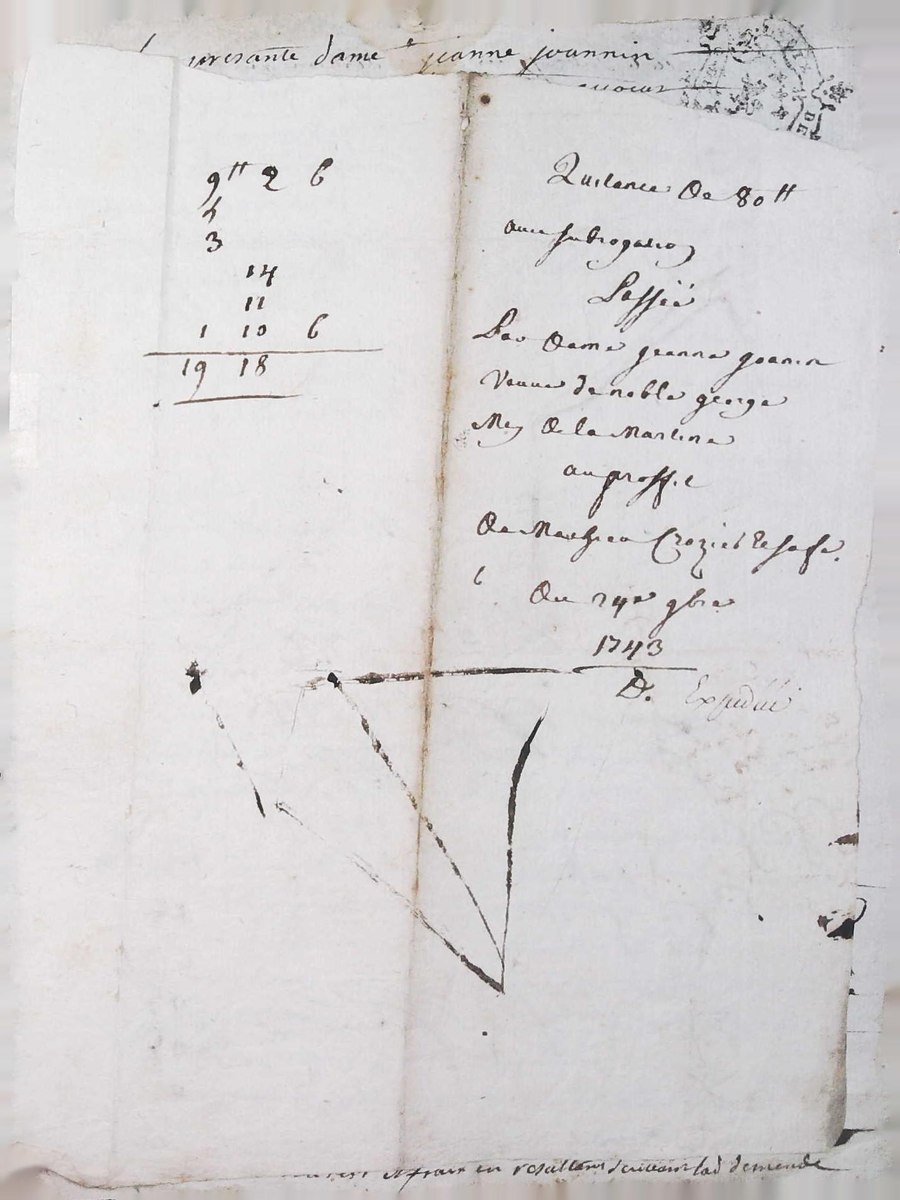 presante dame jeanne joannin
9tt 2 6
4
3
14
11
1 10 6
19 18
Quitance De 80tt
avec subrogation
Passée
Par Dame jeanne joanin
Veuve de noble george
Mey De la Martine
au proffit
De Mathieu Crozier
Du 24e 9bre
1743
D. Expedié
en resultant suivant lad demende